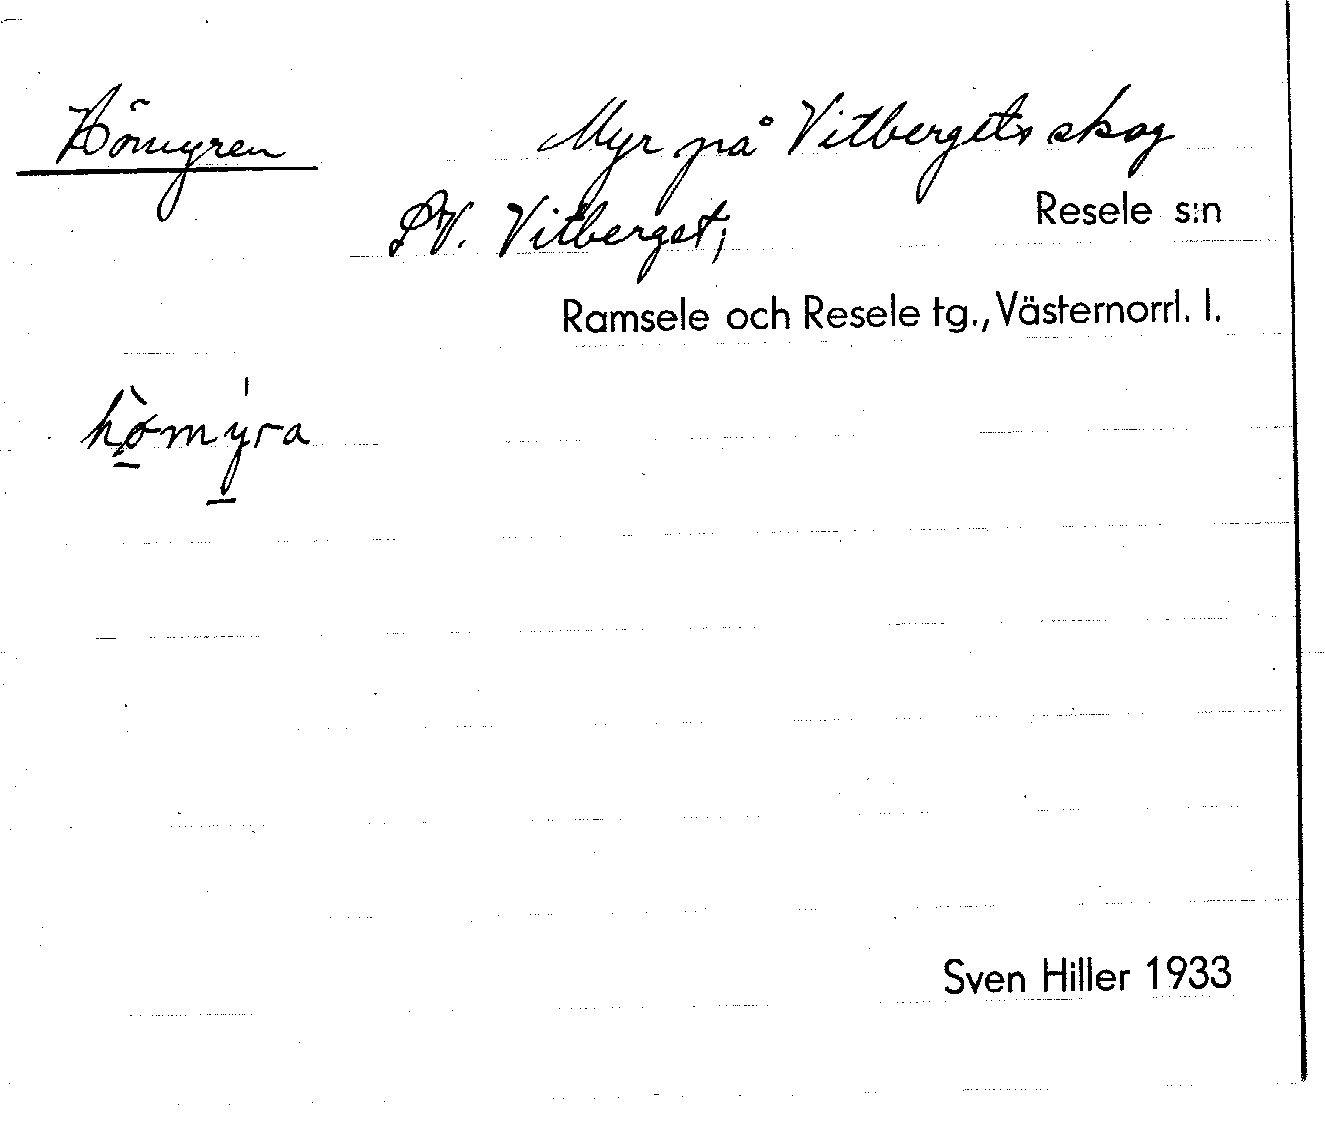 Hömyren
Myr på Vitbergets skog
SV. Vitberget;
Resele s:n
Ramsele och Resele tg., Västernorrl. l.
hø̠̀my̠̍ra
Sven Hiller 1933